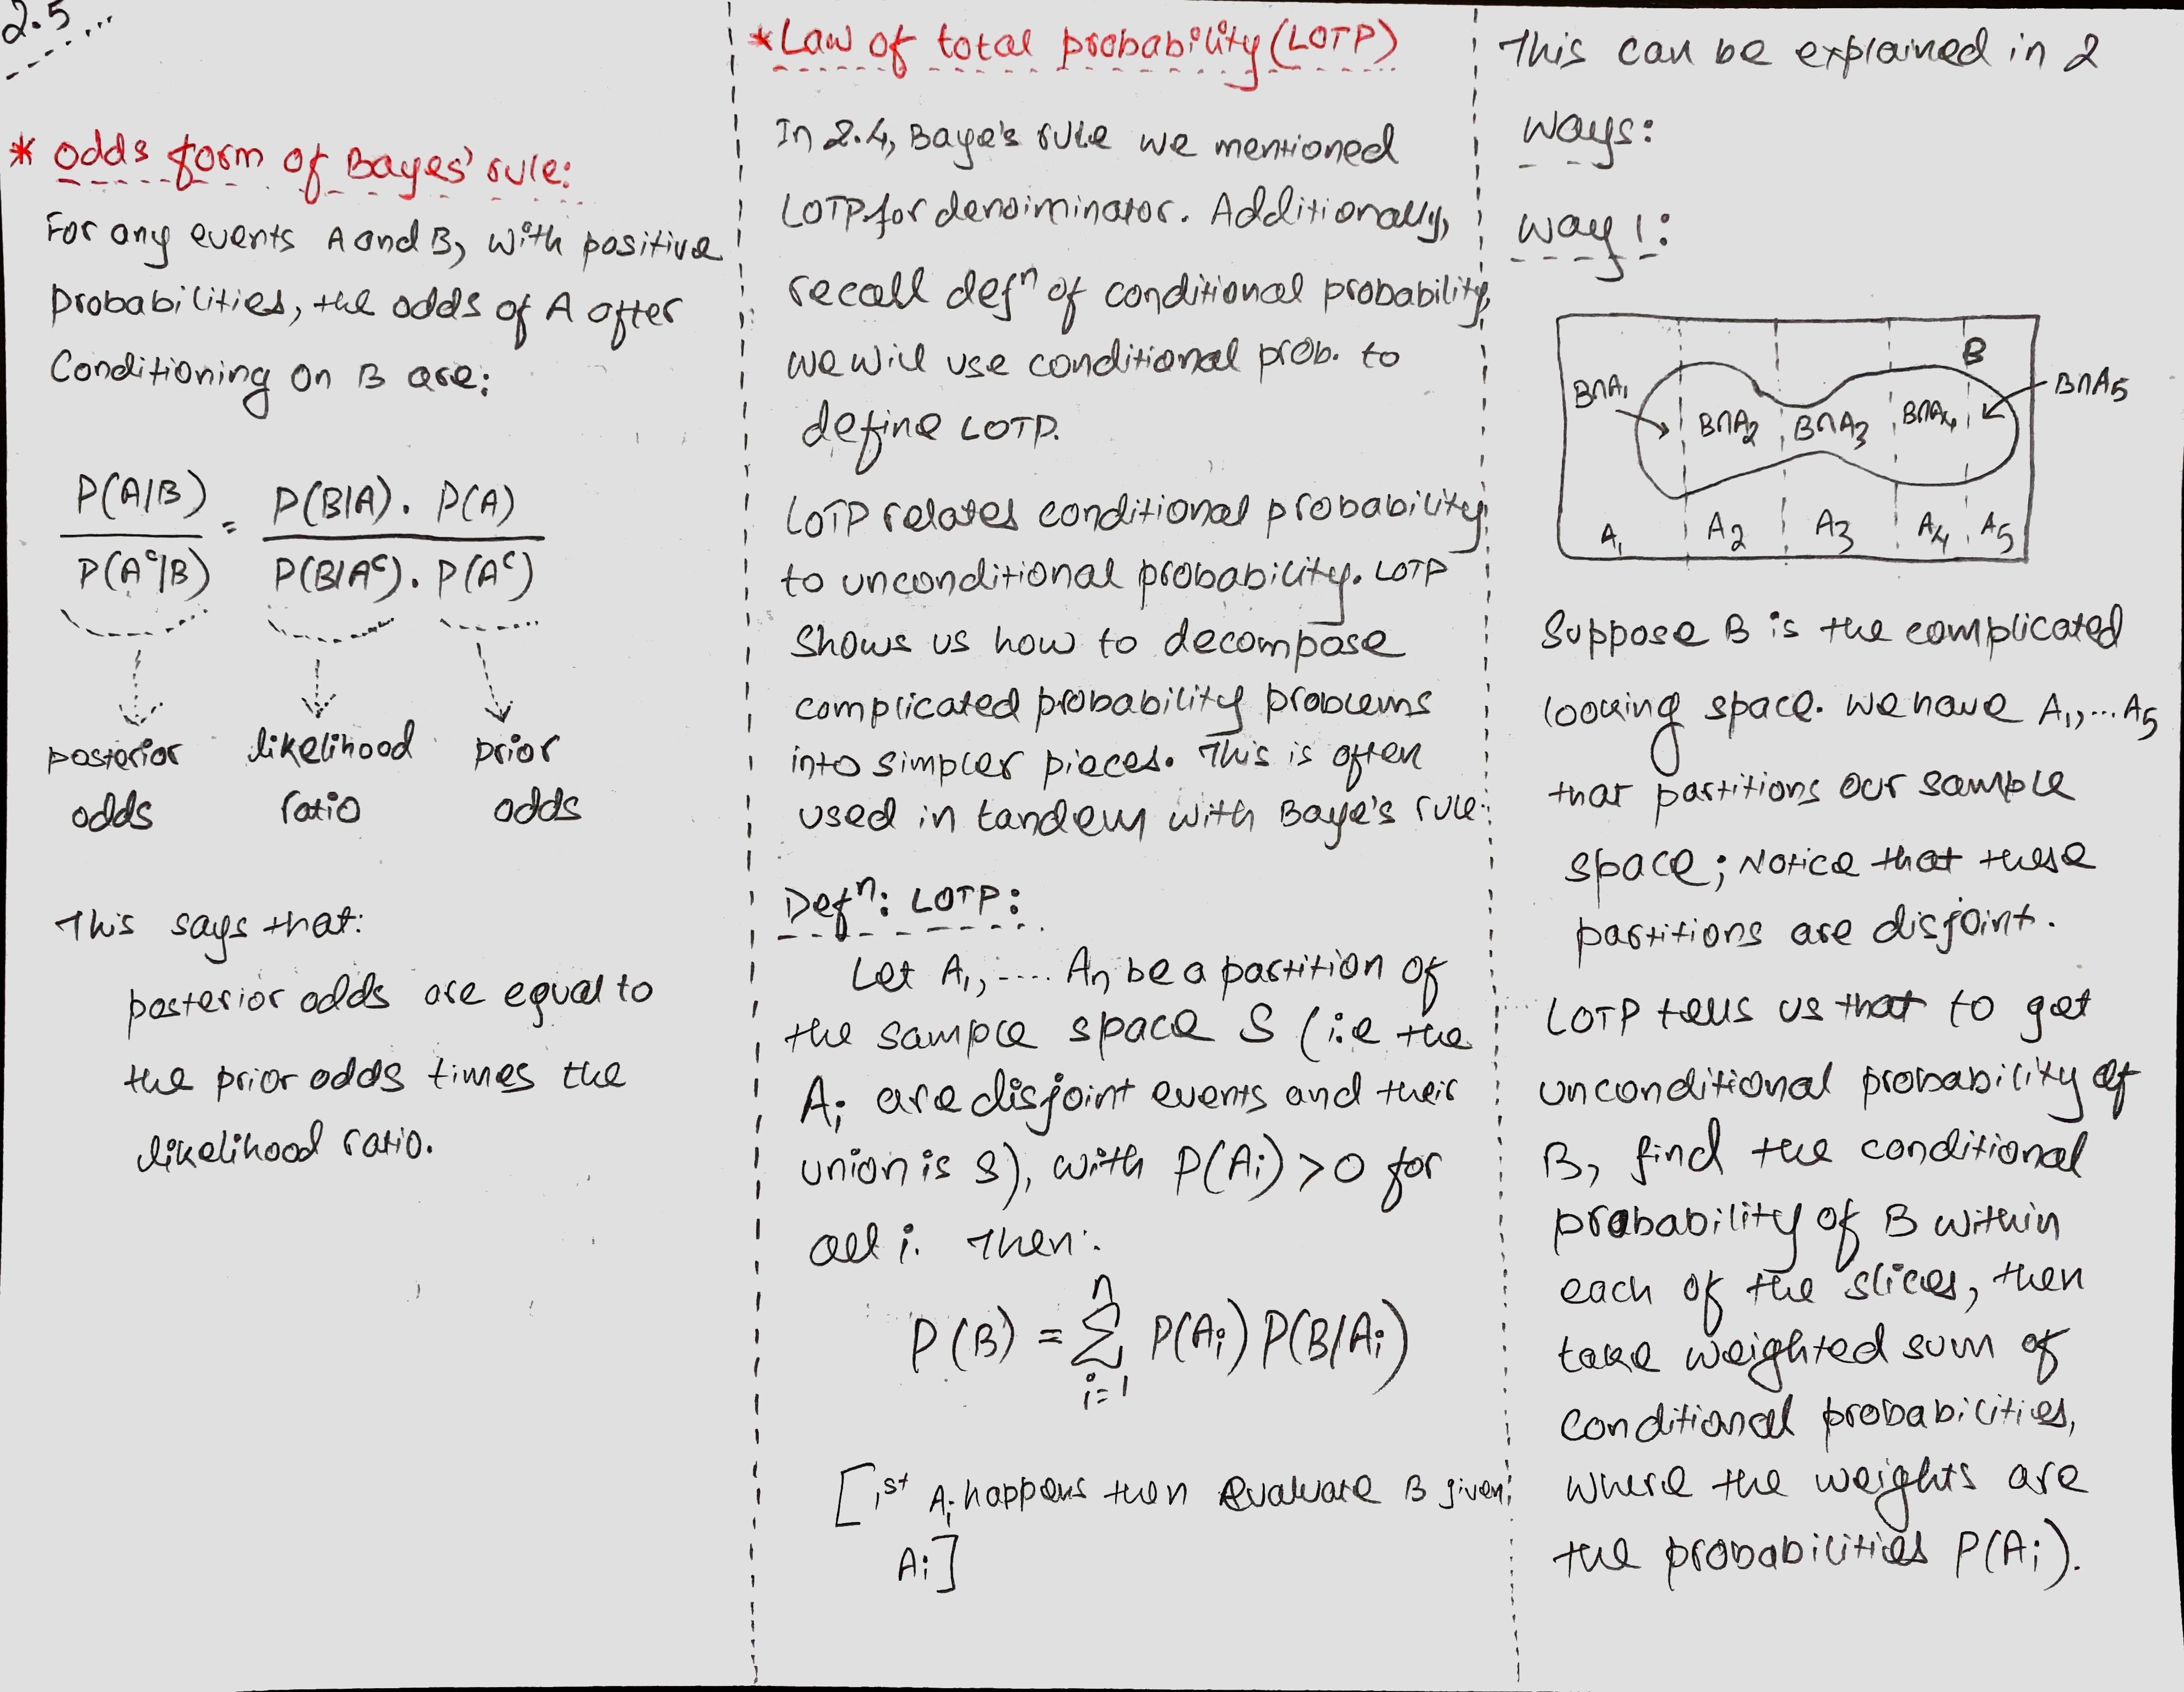 2.5...
* Odds form of Bayes' rule:
For any events A and B, with positive
probabilities, the odds of A after
Conditioning on B are:
P(A|B) = P(B|A) . P(A)
P(Aᶜ|B) P(B|Aᶜ) . P(Aᶜ)
posterior likelihood prior
odds ratio odds
This says that:
posterior odds are equal to
the prior odds times the
likelihood ratio.
* Law of total probability (LOTP)
In 2.4, Baye's rule we mentioned
LOTP for denoiminator. Additionally,
recall defⁿ of conditional probability,
we will use conditional prob. to
define LOTP.
LOTP relates conditional probability
to unconditional probability. LOTP
shows us how to decompose
complicated probability problems
into simpler pieces. This is often
used in tandem with Baye's rule.
Defⁿ: LOTP:
Let A₁, .... Aₙ be a partition of
the sample space S (i.e the
Aᵢ are disjoint events and their
union is S), with P(Aᵢ) > 0 for
all i. Then:
P(B) = Σ P(Aᵢ) P(B/Aᵢ)
n
i=1
[1st Aᵢ happens then evaluate B given
Aᵢ]
This can be explained in 2
ways:
way 1:
B
B∩A₁ B∩A₂ B∩A₃ B∩A₄ B∩A₅
A₁ A₂ A₃ A₄ A₅
Suppose B is the complicated
looking space. we have A₁,... A₅
that partitions our sample
space; Notice that these
partitions are disjoint.
LOTP tells us that to get
unconditional probability of
B, find the conditional
probability of B within
each of the slices, then
take weighted sum of
conditional probabilities,
where the weights are
the probabilities P(Aᵢ).